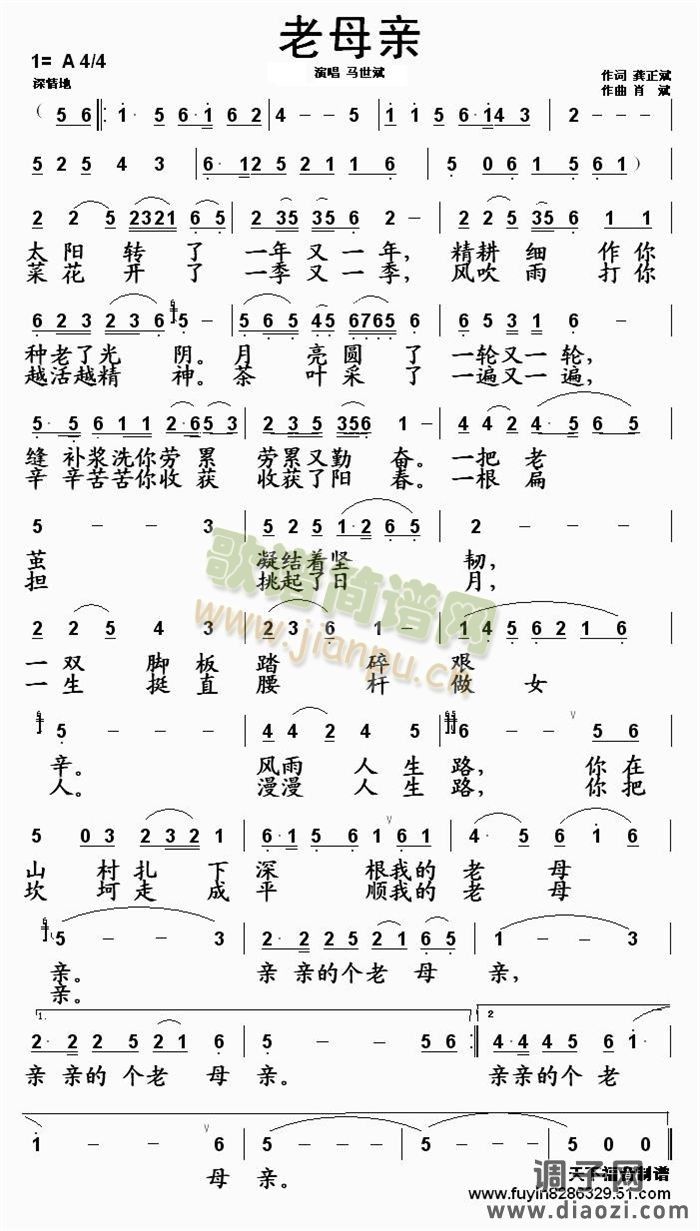 老母亲
1= A 4/4
深情地
演唱 马世斌
作词 龚正斌
作曲 肖 斌
太 阳 转 了 一年又一年, 精耕 细 作你
菜 花 开 了 一季又一季, 风吹 雨 打你
种老了光 阴。月 亮圆了 一轮又一轮,
越活越精 神。茶 叶采了 一遍又一遍,
缝 补浆洗你劳 累 劳累又勤 奋。一把 老
辛 辛苦苦你收 获 收获了阳 春。一根 扁
茧 凝结着坚 韧,
担 挑起了日 月,
一 双 脚 板 踏 碎 艰
一 生 挺 直 腰 杆 做 女
辛。 风雨 人 生 路, 你 在
人。 漫漫 人 生 路, 你 把
山 村扎 下 深 根我的 老 母
坎 坷走 成 平 顺我的 老 母
亲。 亲 亲的个老 母 亲,
亲。
1.
2
亲 亲的 个老 母 亲。 亲亲的个 老
母 亲。
歌谱简谱网
www.jianpu.cn
天子福音制谱
www.fuyin8286329.51.com
调子网
www.diaozi.com